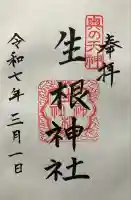 奉拝
奥の天神
生根神社
令和七年三月一日